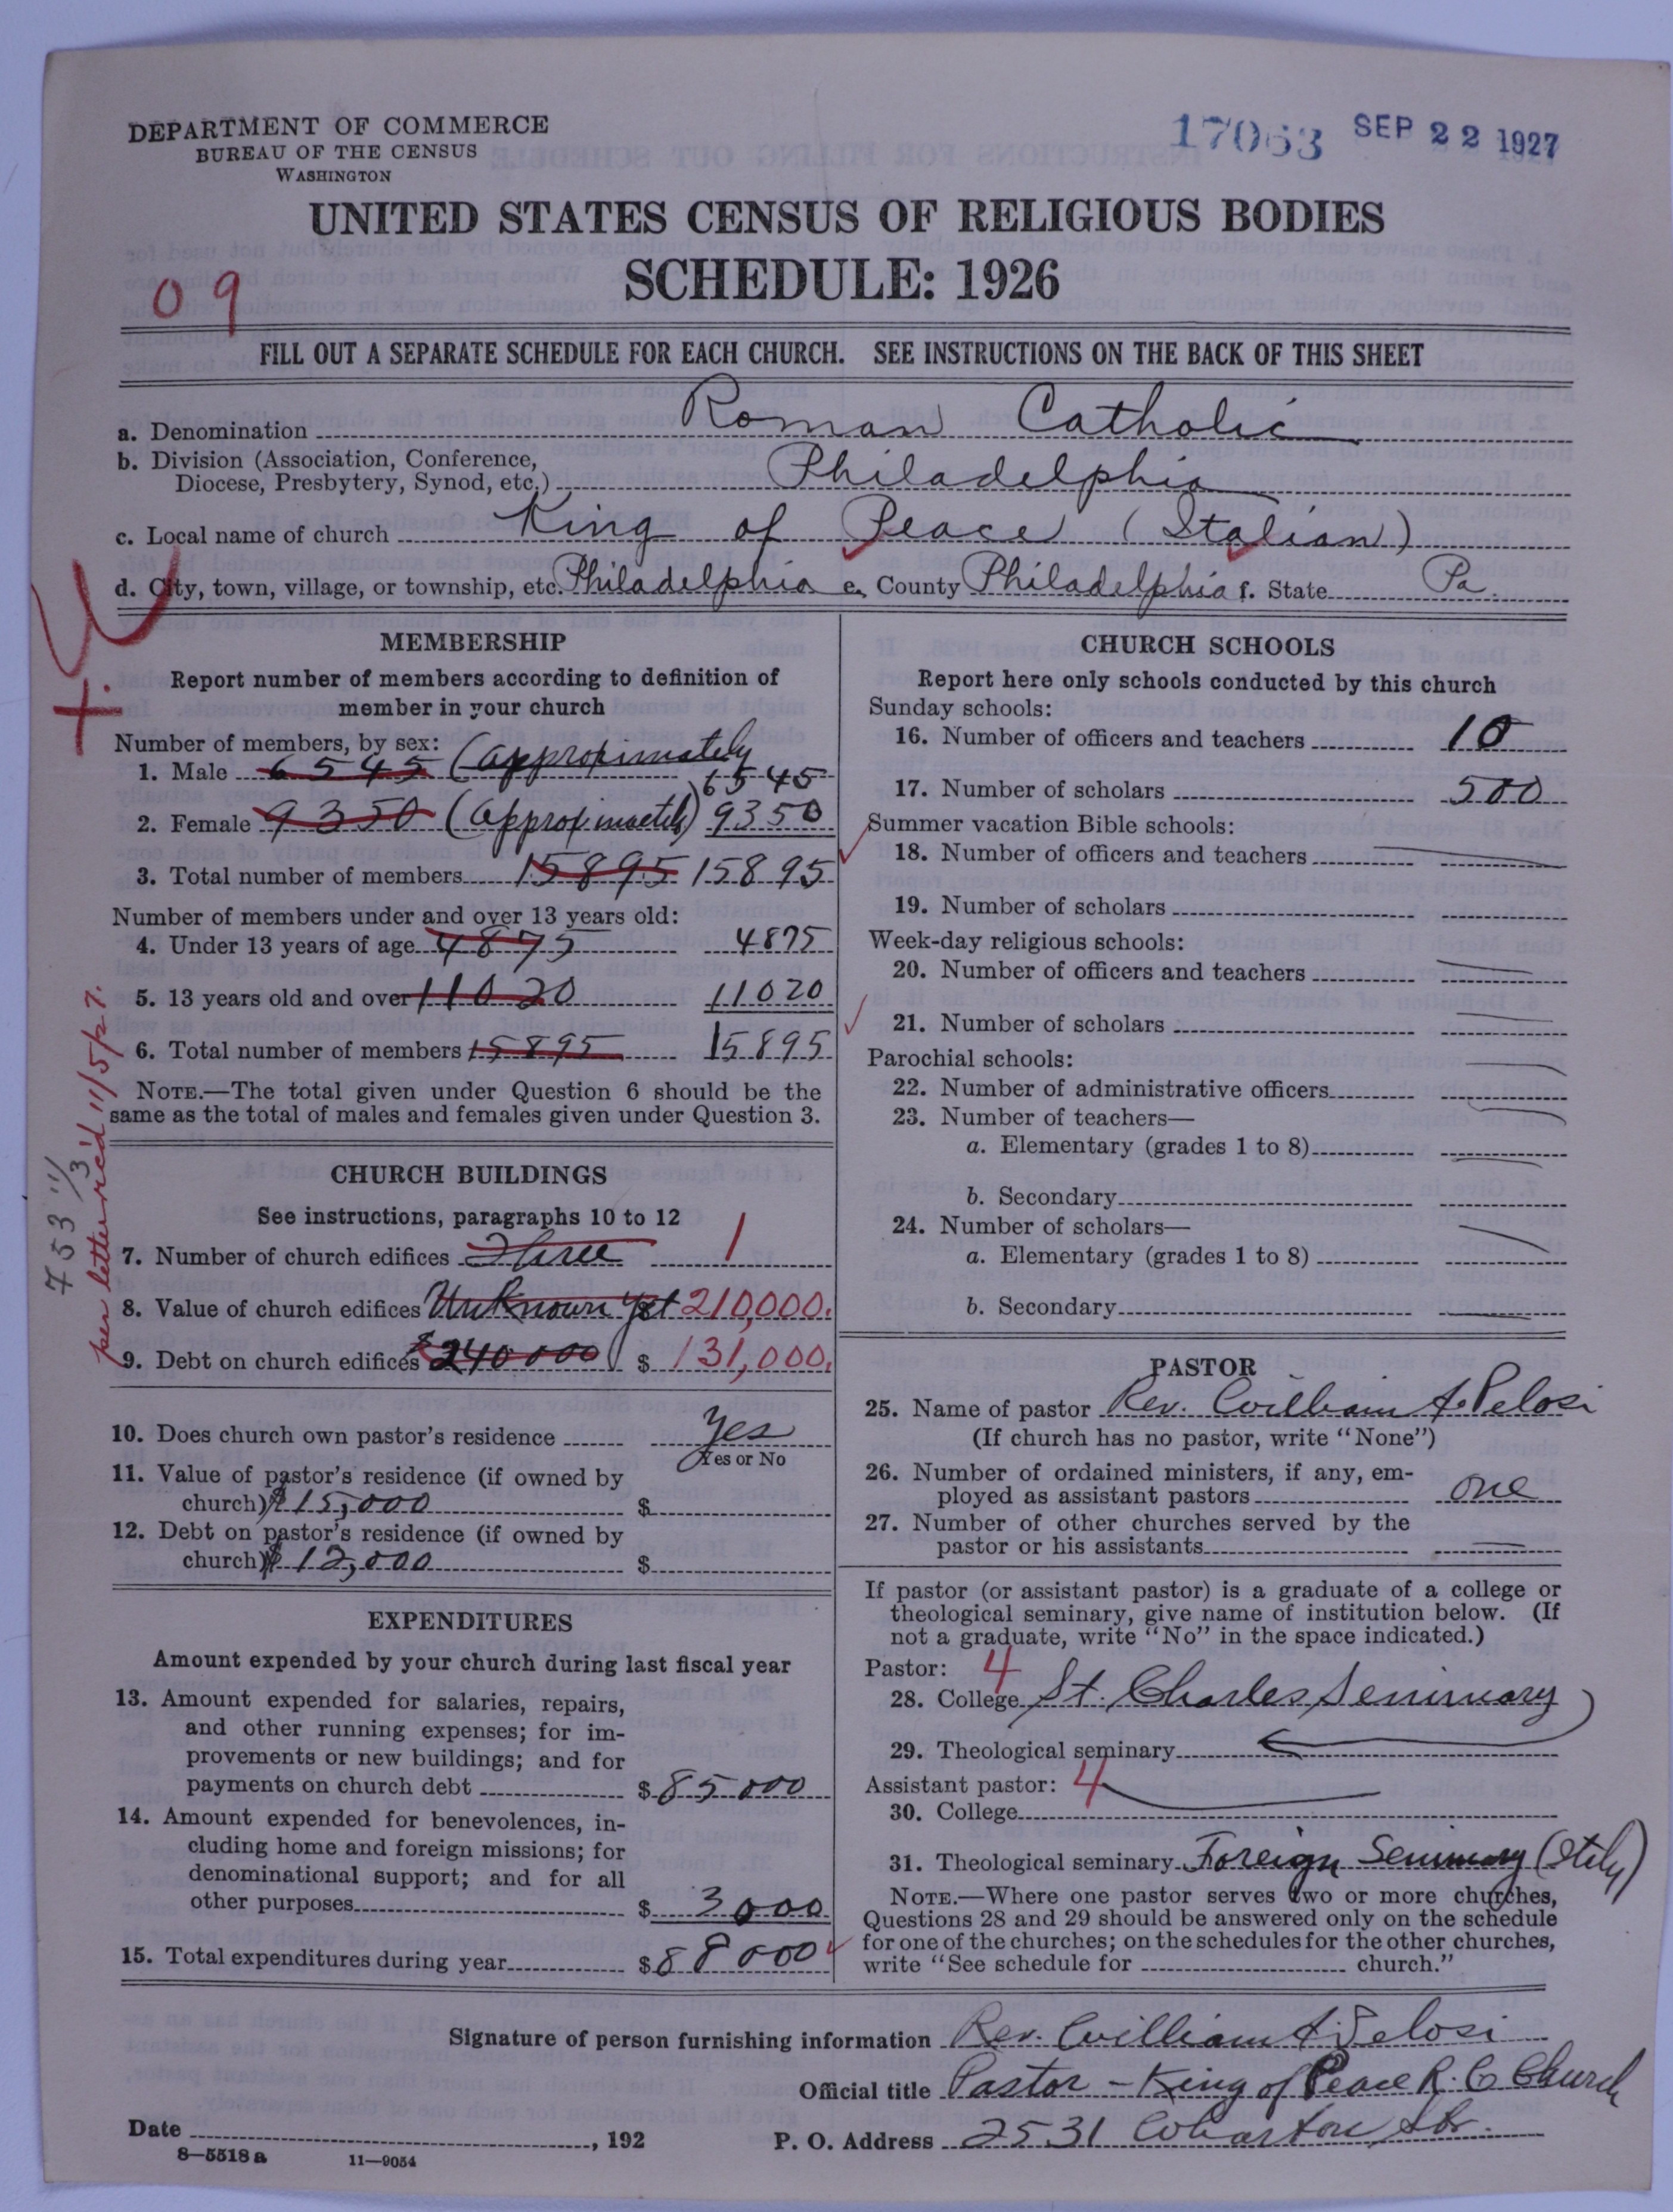 DEPARTMENT OF COMMERCE
BUREAU OF THE CENSUS
WASHINGTON
17063 SEP 22 1927
UNITED STATES CENSUS OF RELIGIOUS BODIES
SCHEDULE: 1926
09
FILL OUT A SEPARATE SCHEDULE FOR EACH CHURCH. SEE INSTRUCTIONS ON THE BACK OF THIS SHEET
a. Denomination Roman Catholic
b. Division (Association, Conference,
Diocese, Presbytery, Synod, etc.) Philadelphia
c. Local name of church King of Peace (Italian)
d. City, town, village, or township, etc. Philadelphia e. County Philadelphia f. State Pa.
MEMBERSHIP
Report number of members according to definition of
member in your church
Number of members, by sex: (approximately
1. Male 6545 6545
2. Female 9350 (approximately) 9350
3. Total number of members 15895 15895
Number of members under and over 13 years old:
4. Under 13 years of age 4875 4875
5. 13 years old and over 11020 11020
6. Total number of members 15895 15895
NOTE.—The total given under Question 6 should be the
same as the total of males and females given under Question 3.
753 11/3
per letter rec'd 11/5/27.
CHURCH BUILDINGS
See instructions, paragraphs 10 to 12
7. Number of church edifices Three 1
8. Value of church edifices Unknown yet 210,000.
9. Debt on church edifices $240000 $ 131,000.
10. Does church own pastor's residence Yes
Yes or No
11. Value of pastor's residence (if owned by
church) $15,000 $
12. Debt on pastor's residence (if owned by
church) $12,000 $
EXPENDITURES
Amount expended by your church during last fiscal year
13. Amount expended for salaries, repairs,
and other running expenses; for im-
provements or new buildings; and for
payments on church debt $ 85000
14. Amount expended for benevolences, in-
cluding home and foreign missions; for
denominational support; and for all
other purposes $ 3000
15. Total expenditures during year $ 88000
CHURCH SCHOOLS
Report here only schools conducted by this church
Sunday schools:
16. Number of officers and teachers 10
17. Number of scholars 500
Summer vacation Bible schools:
18. Number of officers and teachers
19. Number of scholars
Week-day religious schools:
20. Number of officers and teachers
21. Number of scholars
Parochial schools:
22. Number of administrative officers
23. Number of teachers—
a. Elementary (grades 1 to 8)
b. Secondary
24. Number of scholars—
a. Elementary (grades 1 to 8)
b. Secondary
PASTOR
25. Name of pastor Rev. William A. Pelosi
(If church has no pastor, write "None")
26. Number of ordained ministers, if any, em-
ployed as assistant pastors one
27. Number of other churches served by the
pastor or his assistants
If pastor (or assistant pastor) is a graduate of a college or
theological seminary, give name of institution below. (If
not a graduate, write "No" in the space indicated.)
Pastor: 4
28. College St. Charles Seminary
29. Theological seminary
Assistant pastor: 4
30. College
31. Theological seminary Foreign Seminary (Italy)
NOTE.—Where one pastor serves two or more churches,
Questions 28 and 29 should be answered only on the schedule
for one of the churches; on the schedules for the other churches,
write "See schedule for church."
Signature of person furnishing information Rev. William A. Pelosi
Official title Pastor - King of Peace R. C Church
Date , 192 P. O. Address 2531 Wharton Str.
8—5518 a 11—9054